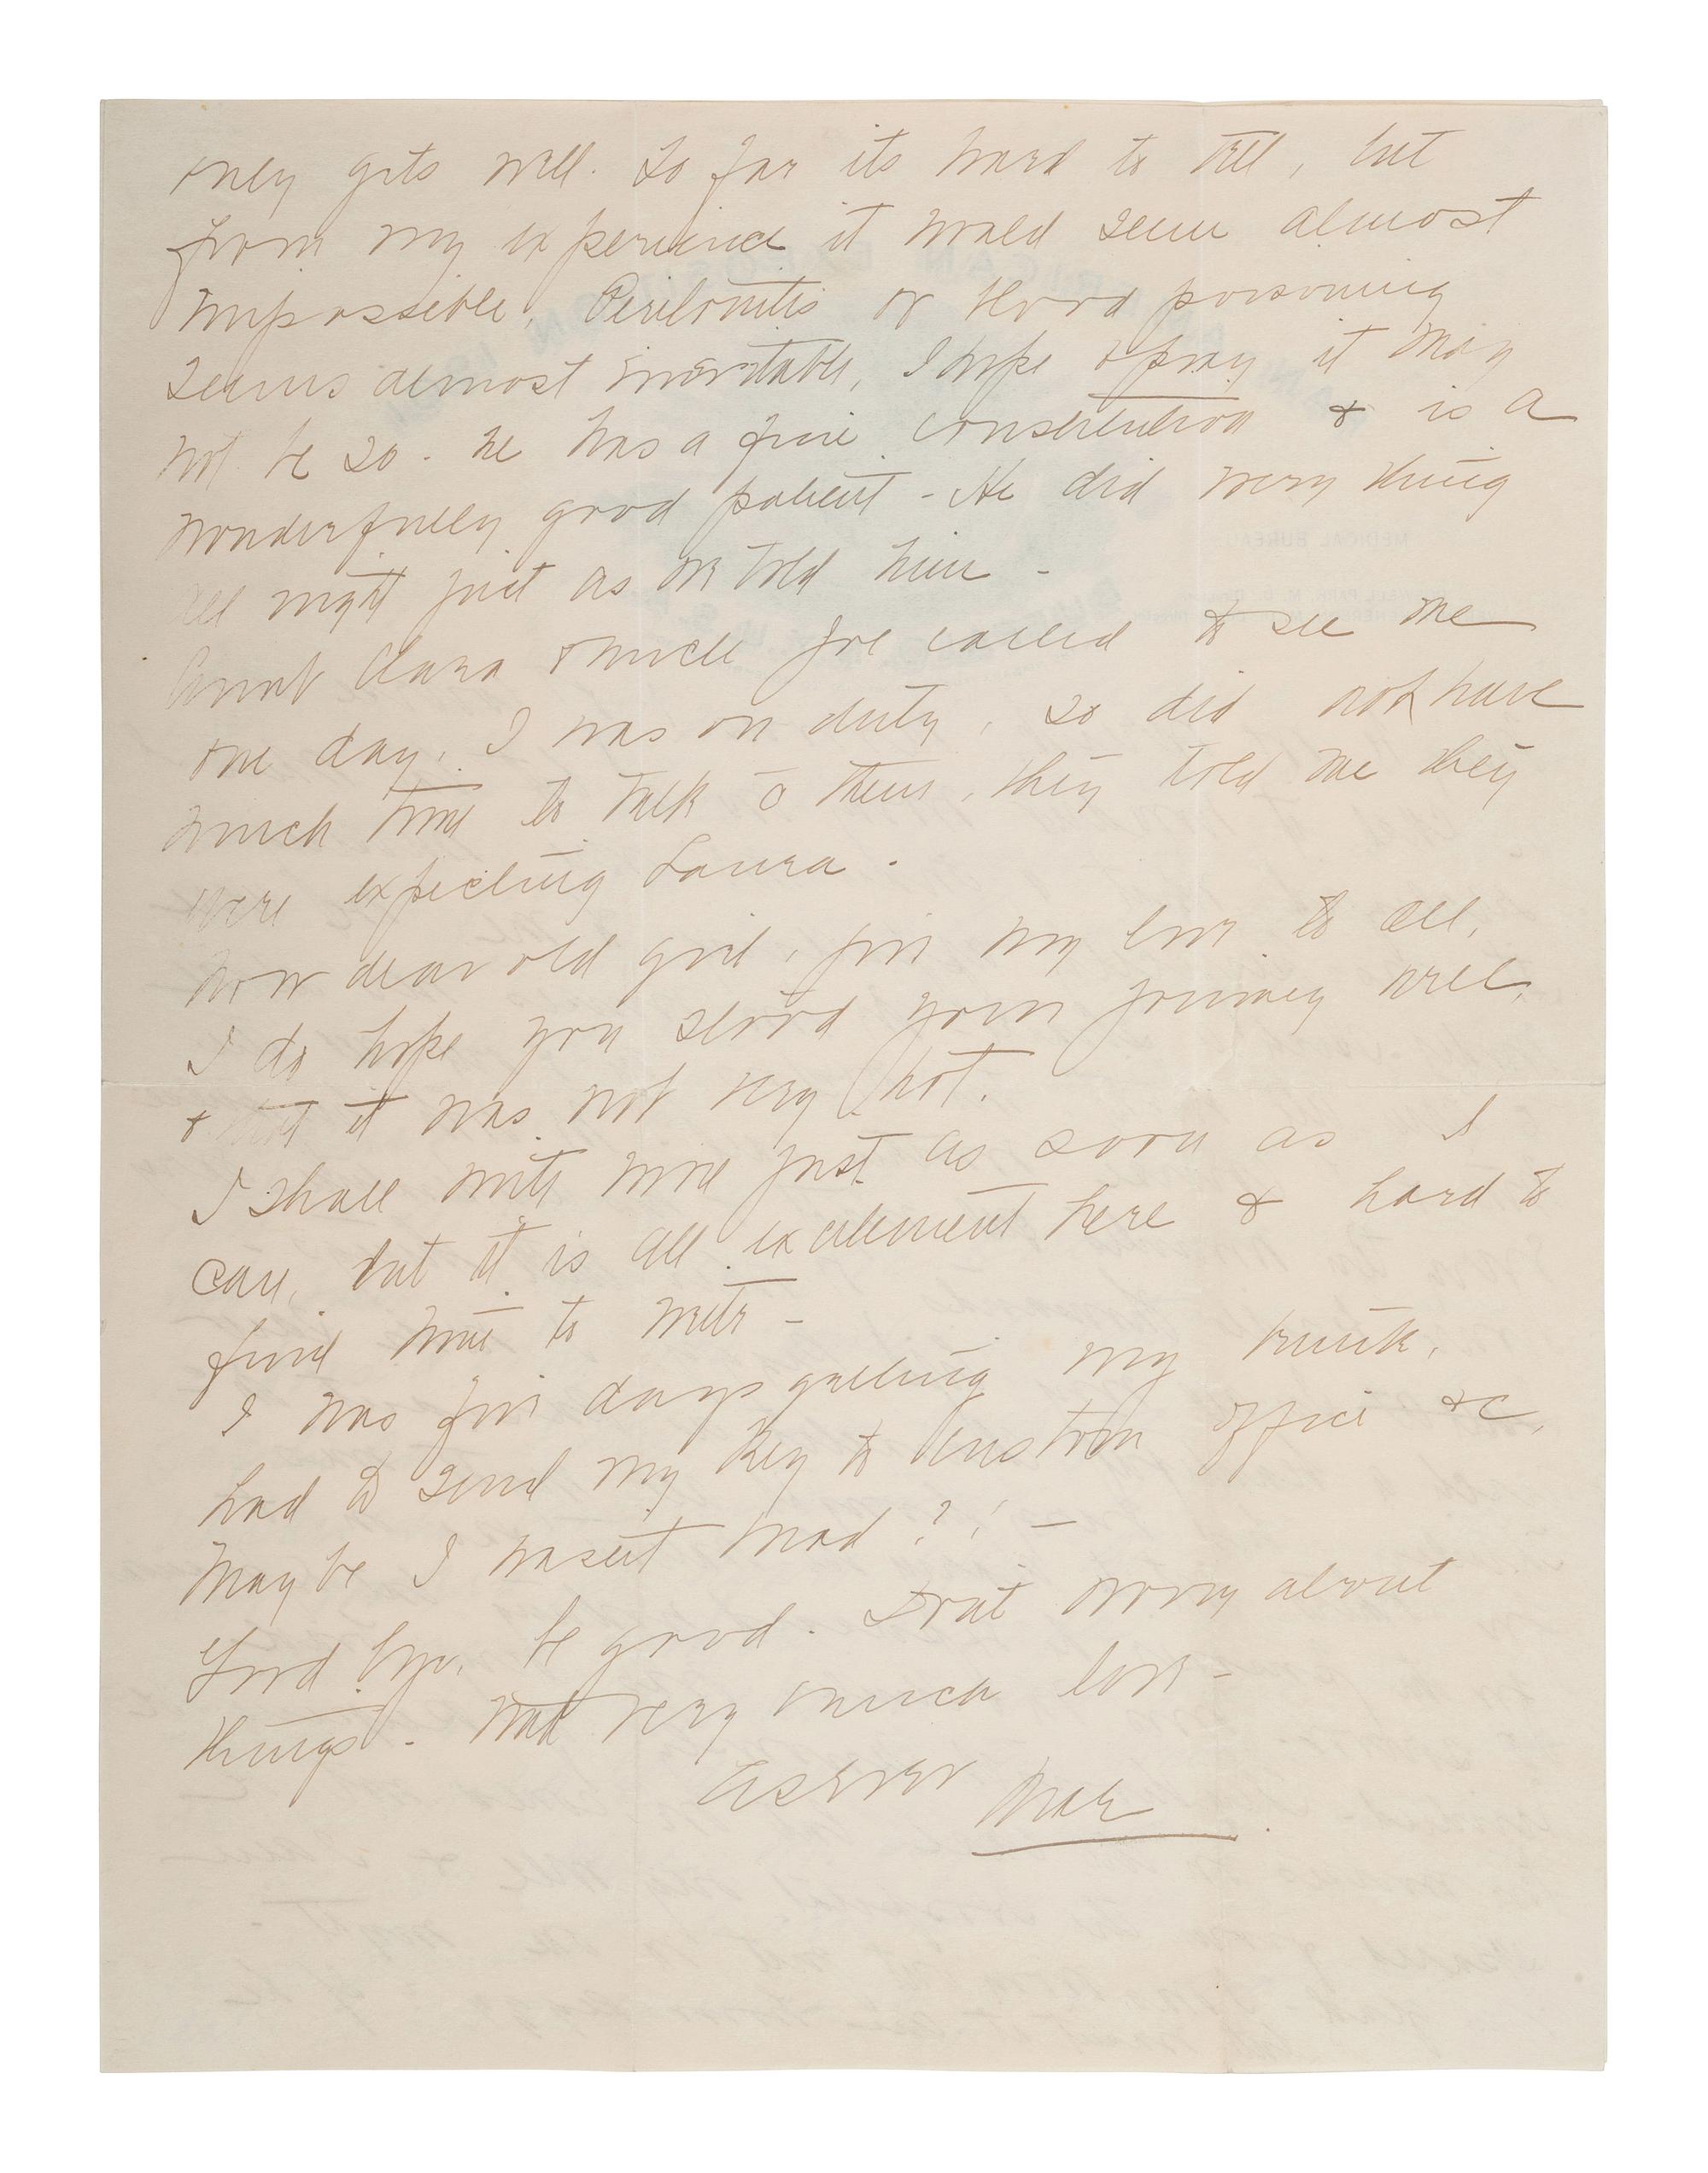 only gets well. So far its hard to tell, but
from my experience it would seem almost
impossible, Peritonitis or blood poisoning
seems almost inevitable, I hope & pray it may
not be so. he has a fine constitution & is a
wonderfully good patient - He did every thing
all night just as we told him -
Aunt Clara & Uncle Joe called to see me
one day. I was on duty, so did not have
much time to talk c̄ them, they told me they
were expecting Laura.
Now dear old girl, give my love to all,
I do hope you stood your journey well,
& that it was not very hot.
I shall write more just as soon as I
can, but it is all excitement here & hard to
find time to write -
I was five days getting my trunk,
had to send my key to Custom office &c,
Maybe I wasn't mad?! -
Good bye, be good. Don't worry about
things. With very much love -
as ever
MEDICAL BUREAU